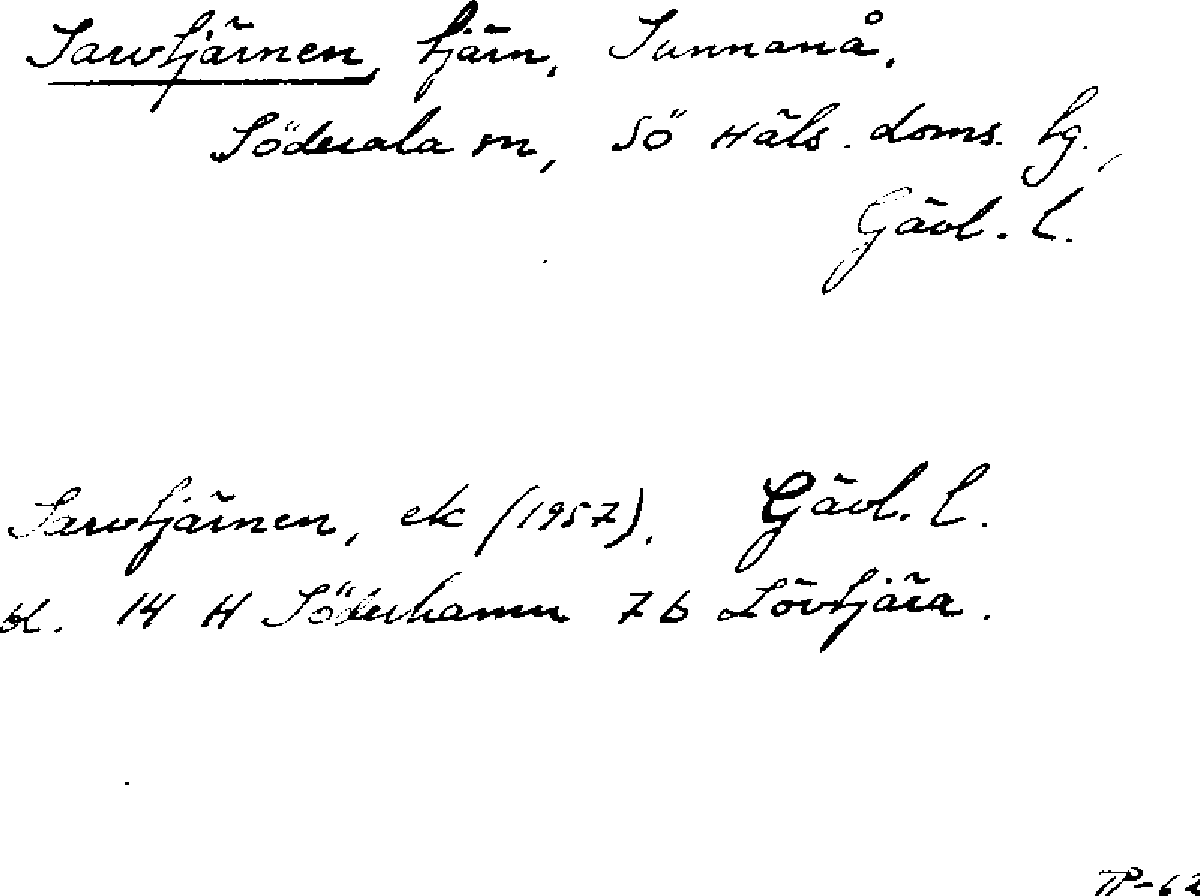 Sarvtjärnen, tjärn, Sunnanå,
Söderala sn, Sö Häls. doms. tg.,
Gävl. l.
Sarvtjärnen, ek (1957). Gävl. l.
bl. 14 H Söderhamn 7 b Lövtjära.
TP-62